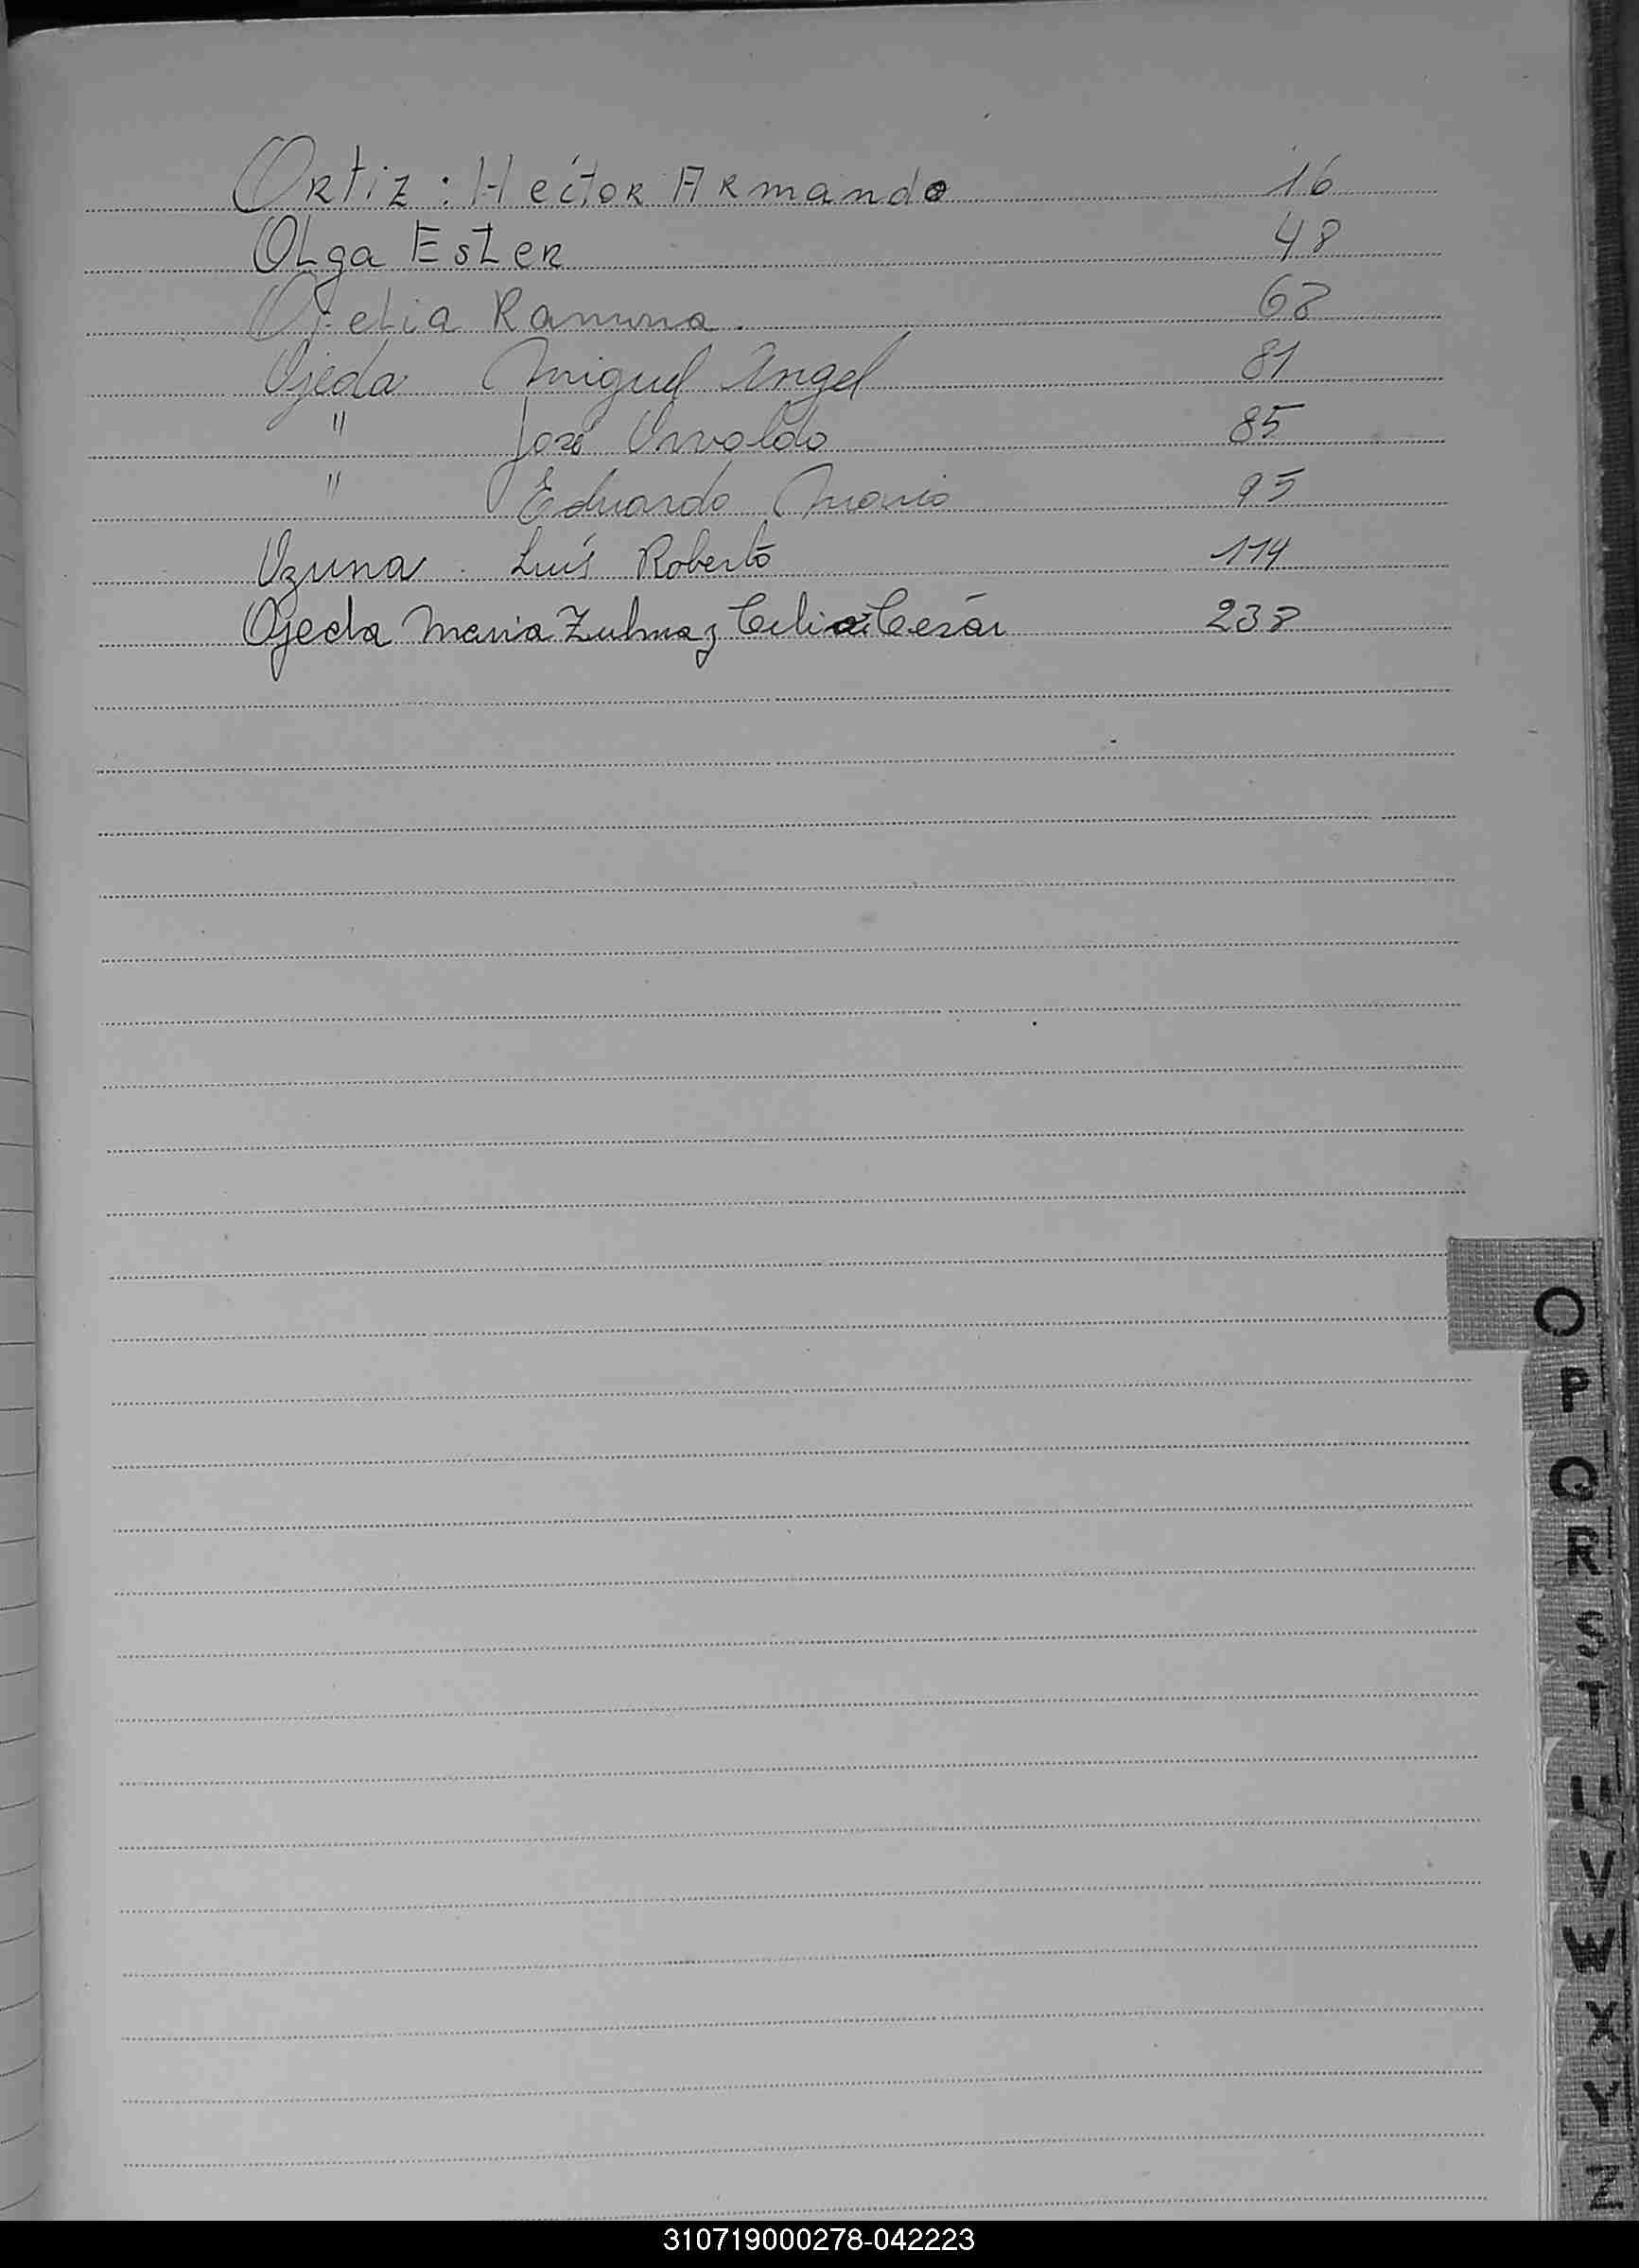 Ortiz: Hector Armando 16
Olga Ester 48
Ofelia Ramona. 68
Ojeda Miguel Angel 81
" José Osvaldo 85
" Eduardo Mario 95
Ozuna Luís Roberto 114
Ojeda Maria Zulma y Celia Cesár 238
O
P
Q
R
S
T
U
V
W
X
Y
Z
310719000278-042223